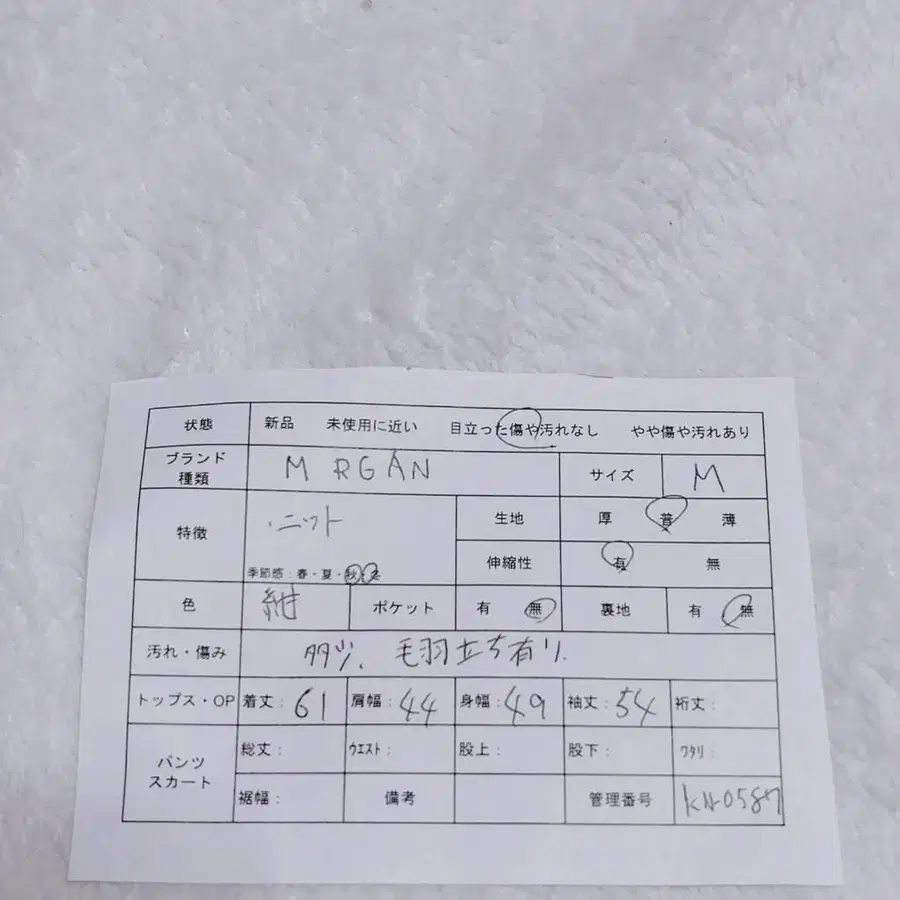 状態 新品 未使用に近い 目立った傷や汚れなし やや傷や汚れあり
ブランド 種類 M RGAN サイズ M
特徴 ニット 生地 厚 普 薄
季節感:春・夏・秋・冬 伸縮性 有 無
色 紺 ポケット 有 無 裏地 有 無
汚れ・傷み 毛羽立ち有り.
トップス・OP 着丈:61 肩幅:44 身幅:49 袖丈:54 裄丈:
パンツ スカート 総丈: ウエスト: 股上: 股下: ワタリ:
裾幅: 備考 管理番号